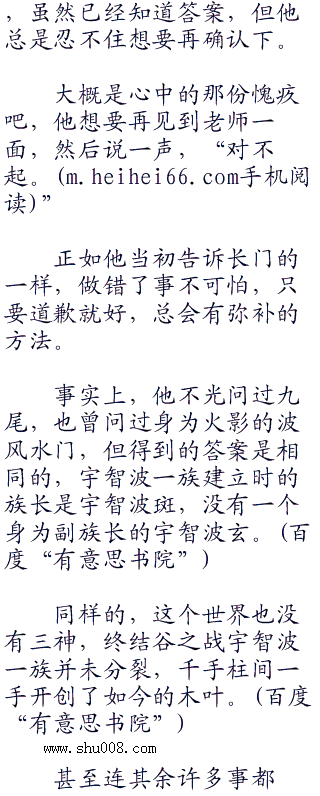 ，虽然已经知道答案，但他
总是忍不住想要再确认下。
大概是心中的那份愧疚
吧，他想要再见到老师一
面，然后说一声，“对不
起。(m.heihei66.com手机阅
读)”
正如他当初告诉长门的
一样，做错了事不可怕，只
要道歉就好，总会有弥补的
方法。
事实上，他不光问过九
尾，也曾问过身为火影的波
风水门，但得到的答案是相
同的，宇智波一族建立时的
族长是宇智波斑，没有一个
身为副族长的宇智波玄。(百
度“有意思书院”)
同样的，这个世界也没
有三神，终结谷之战宇智波
一族并未分裂，千手柱间一
手开创了如今的木叶。(百度
“有意思书院”)
www.shu008.com
甚至连其余许多事都